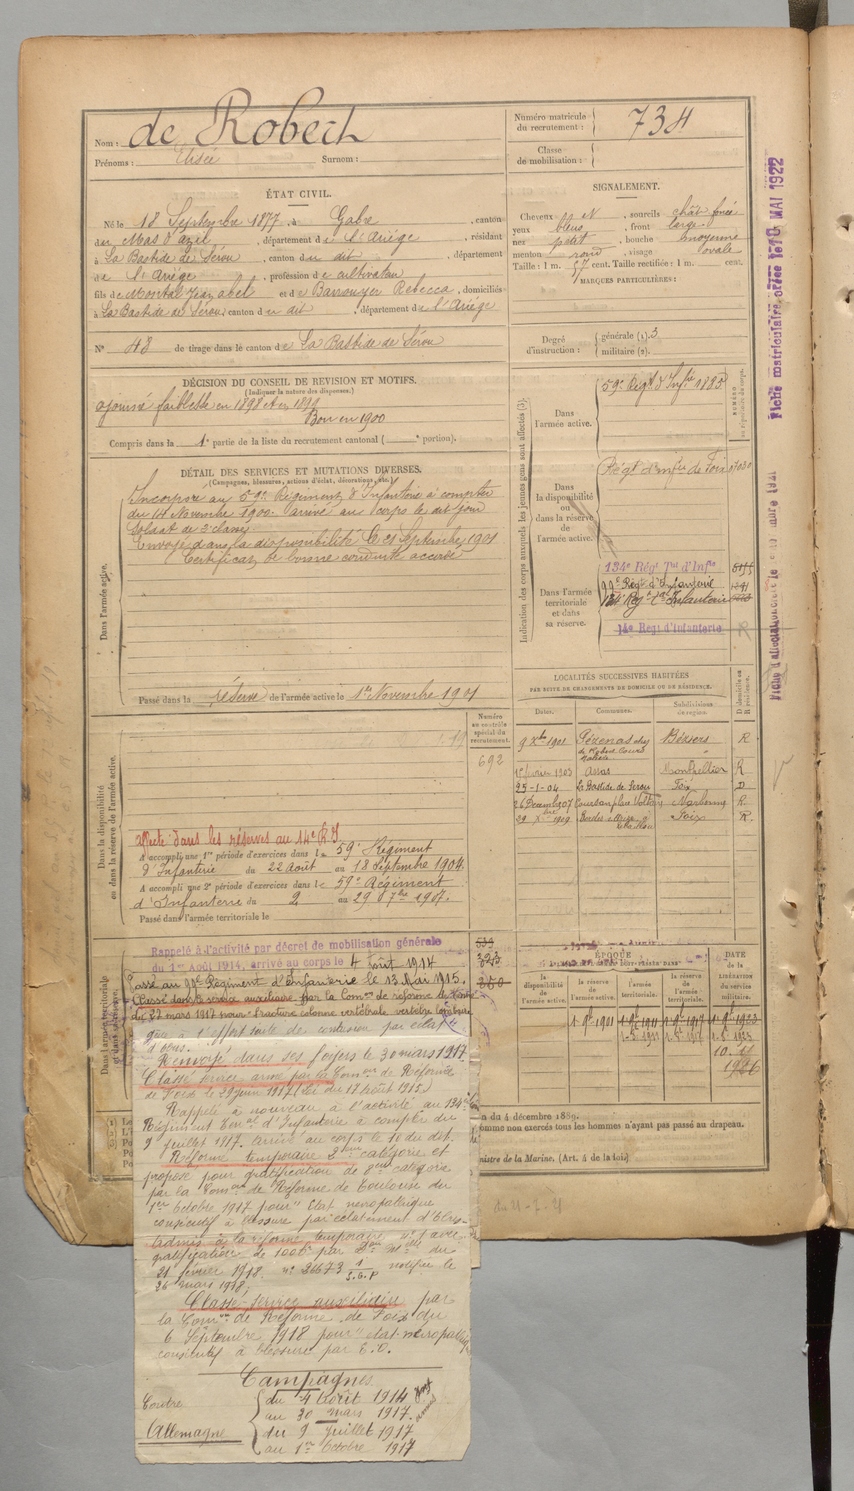 Nom : de Robert
Prénoms : Elisée Surnom :
Numéro matricule du recrutement : 734
Classe de mobilisation :
ÉTAT CIVIL.
Né le 18 Septembre 1877, à Gabre, canton
du Mas d'azil, département de l'Ariège, résidant
à La Bastide de Sérou, canton du dit, département
de l'Ariège, profession de cultivateur
fils de Montal Jean abel et de Rebecca, domiciliés
à La Bastide de Sérou, canton du dit, département de l'Ariège
No 48 de tirage dans le canton de La Bastide de Sérou
SIGNALEMENT.
Cheveux et sourcils chât foncé
yeux bleus, front large
nez petit, bouche moyenne
menton rond, visage ovale
Taille : 1 m. 57 cent. Taille rectifiée : 1 m. cent.
MARQUES PARTICULIÈRES :
Degré d'instruction : générale (1). 3
militaire (2).
DÉCISION DU CONSEIL DE REVISION ET MOTIFS.
(Indiquer la nature des dispenses.)
ajourné faiblesse en 1898 et en 1899
Bon en 1900
Compris dans la 1e partie de la liste du recrutement cantonal ( portion).
DÉTAIL DES SERVICES ET MUTATIONS DIVERSES.
(Campagnes, blessures, actions d'éclat, décorations, etc.)
Dans l'armée active.
Incorporé au 59e Régiment d'Infanterie à compter
du 14 Novembre 1900. arrivé au corps le dit jour
Soldat de 2e classe
Envoyé dans la disponibilité le 21 Septembre 1901
Certificat de bonne conduite accordé
Passé dans la réserve de l'armée active le 1er Novembre 1901
Indication des corps auxquels les jeunes gens sont affectés (3).
Dans l'armée active.
59e Régt d'Infie
Dans la disponibilité ou dans la réserve de l'armée active.
Régt d'Infie de Foix
Dans l'armée territoriale et dans sa réserve.
134e Régt Tal d'Infie
99e Régt d'Infanterie
134e Regt tal Infanterie
14e Régt d'Infanterie
LOCALITÉS SUCCESSIVES HABITÉES
PAR SUITE DE CHANGEMENTS DE DOMICILE OU DE RÉSIDENCE.
Dates. Communes. Subdivisions de région. D domicile ou R résidence.
9 Xbre 1901 Pézenas chez Béziers R
1903 Montpellier R
25-1-04 La Bastide de Serou Foix D
Narbonne R.
Foix R.
Numéro au contrôle spécial du recrutement.
692
Dans la disponibilité ou dans la réserve de l'armée active.
Affecté dans les réserves au 14e R.I
A accompli une 1re période d'exercices dans le 59e Régiment
d'Infanterie du 22 août au 18 Septembre 1904.
A accompli une 2e période d'exercices dans le 59e Régiment
d'Infanterie du 2 au 29 7bre 1907.
Passé dans l'armée territoriale le
Dans l'armée territoriale et dans sa réserve.
Rappelé à l'activité par décret de mobilisation générale
du 1er Août 1914, arrivé au corps le 4 Août 1914
Passé au 99e Régiment d'Infanterie le 13 Mai 1915.
Classé dans le service auxiliaire par la Comon de réforme de
le 22 mars 1917 pour fracture colonne vertébrale vertèbre lombaire
gêne à l'effort suite de contusion par éclat
d'obus.
Renvoyé dans ses foyers le 30 mars 1917
Classé service armé par la Comon de Réforme
de Foix le 29 juin 1917 (Loi du 17 Août 1915)
Rappelé à nouveau à l'activité au 134e
Régiment Terral d'Infanterie à compter du
9 juillet 1917. arrivé au corps le 10 du dit.
Réforme temporaire 2eme catégorie et
proposé pour gratification de 8eme catégorie
par la Comon de Réforme de Toulouse du
1er Octobre 1917 pour "Etat névropathique
consécutif à blessure par éclatement d'obus
admis à la réforme temporaire no 1 avec
gratification de 100f par Don Mlle du
21 février 1918. no 26673 1/S.G.P notifiée le
26 mars 1918;
Classé service auxiliaire par
la Comon de Réforme de Foix du
6 Septembre 1918 pour "état névropathique
consécutif à blessure par E.O.
Campagnes
Contre Allemagne
du 4 Août 1914
au 30 mars 1917.
du 9 Juillet 1917
au 1er Octobre 1917
323
ÉPOQUE
DATE DE LA LIBÉRATION DU SERVICE MILITAIRE.
la disponibilité de l'armée active. la réserve de l'armée active. l'armée territoriale. la réserve de l'armée territoriale.
1-9bre 1901
1926
du 4 décembre 1889.
comme non exercés tous les hommes n'ayant pas passé au drapeau.
nistre de la Marine. (Art. 4 de la loi).
Fiche matriculaire créée le 10 MAI 1922